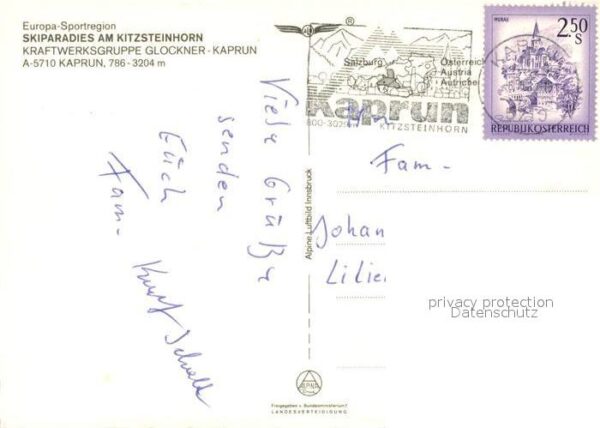 Europa-Sportregion
SKIPARADIES AM KITZSTEINHORN
KRAFTWERKSGRUPPE GLOCKNER - KAPRUN
A-5710 KAPRUN, 786 - 3204 m
®
Salzburg
Österreich
Austria
Autriche
Kaprun
KITZSTEINHORN
MURAU
2.50
S
REPUBLIK ÖSTERREICH
KAPRUN
Viele Grüße
senden
Euch
Fam.
Kurt
An
Fam-
Johan
Lilie
Alpine Luftbild Innsbruck
privacy protection
Datenschutz
ALPINA
Freigegeben v. Bundesministerium f.
LANDESVERTEIDIGUNG